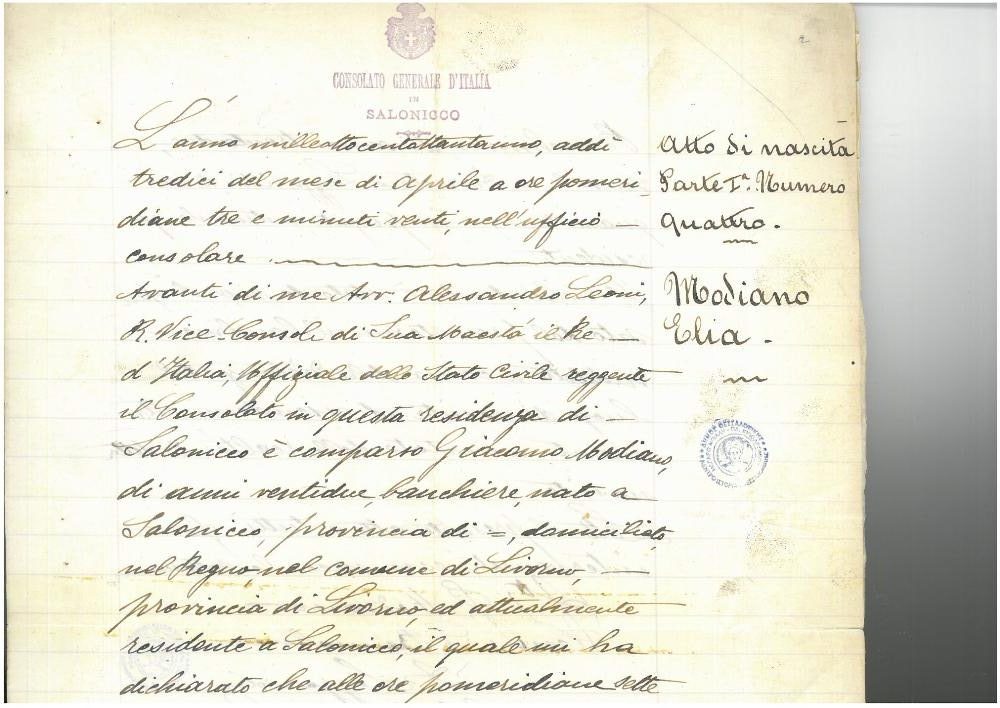 CONSOLATO GENERALE D'ITALIA
IN
SALONICCO
L'anno milleottocentottantanno, addì
tredici del mese di Aprile a ore pomeri-
diane tre e minuti venti, nell'ufficio —
consolare.
Avanti di me Avv. Alessandro Leoni,
R. Vice-Console di Sua Maestà il Re —
d'Italia, Uffiziale dello Stato Civile reggente
il Consolato in questa residenza di —
Salonicco è comparso Giacomo Modiano,
di anni ventidue, banchiere, nato a
Salonicco, provincia di =, domiciliato
nel Regno, nel comune di Livorno, —
provincia di Livorno, ed attualmente
residente a Salonicco, il quale mi ha
dichiarato che alle ore pomeridiane sette
Atto di nascita
Parte Iª. Numero
Quattro.
Modiano
Elia.